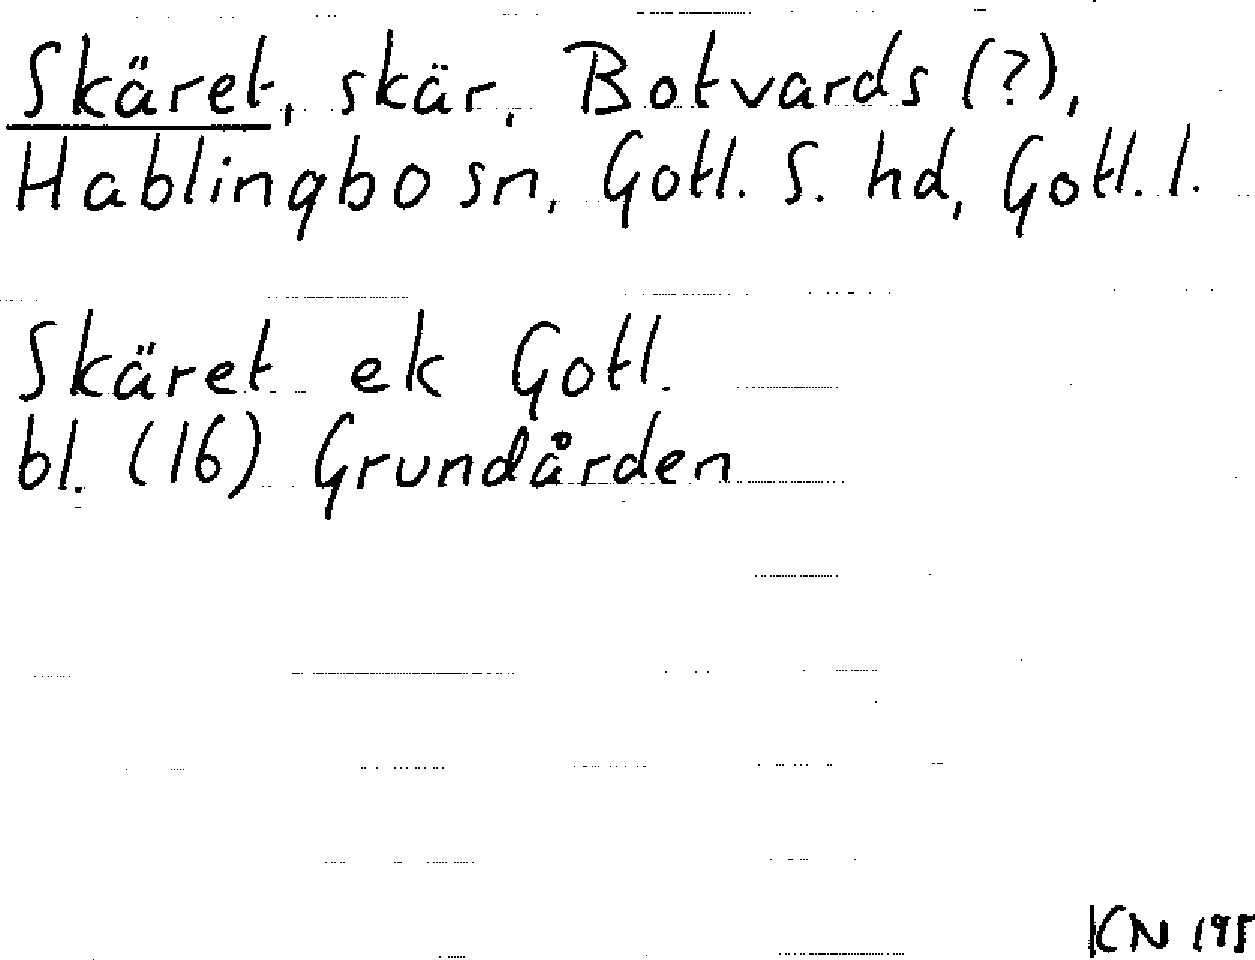 Skäret, skär, Botvards (?),
Hablingbo sn, Gotl. S. hd, Gotl. l.
Skäret ek Gotl.
bl. (16) Grundården
KCN 195